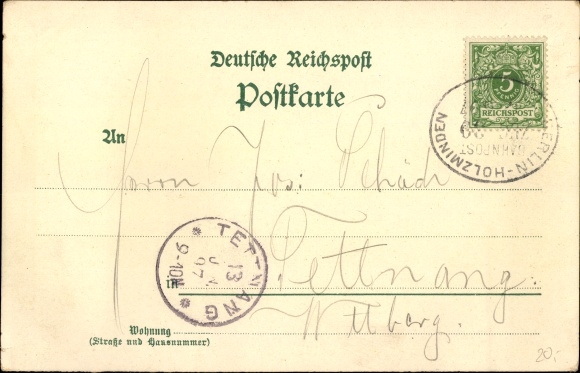 Deutsche Reichspost
Postkarte
5
REICHSPOST
BERLIN-HOLZMINDEN
BAHNPOST
An
Herrn Jos: Schäch
TETTNANG
13
97
9-10
in Tettnang.
Wttberg.
Wohnung
(Straße und Hausnummer)
20.-